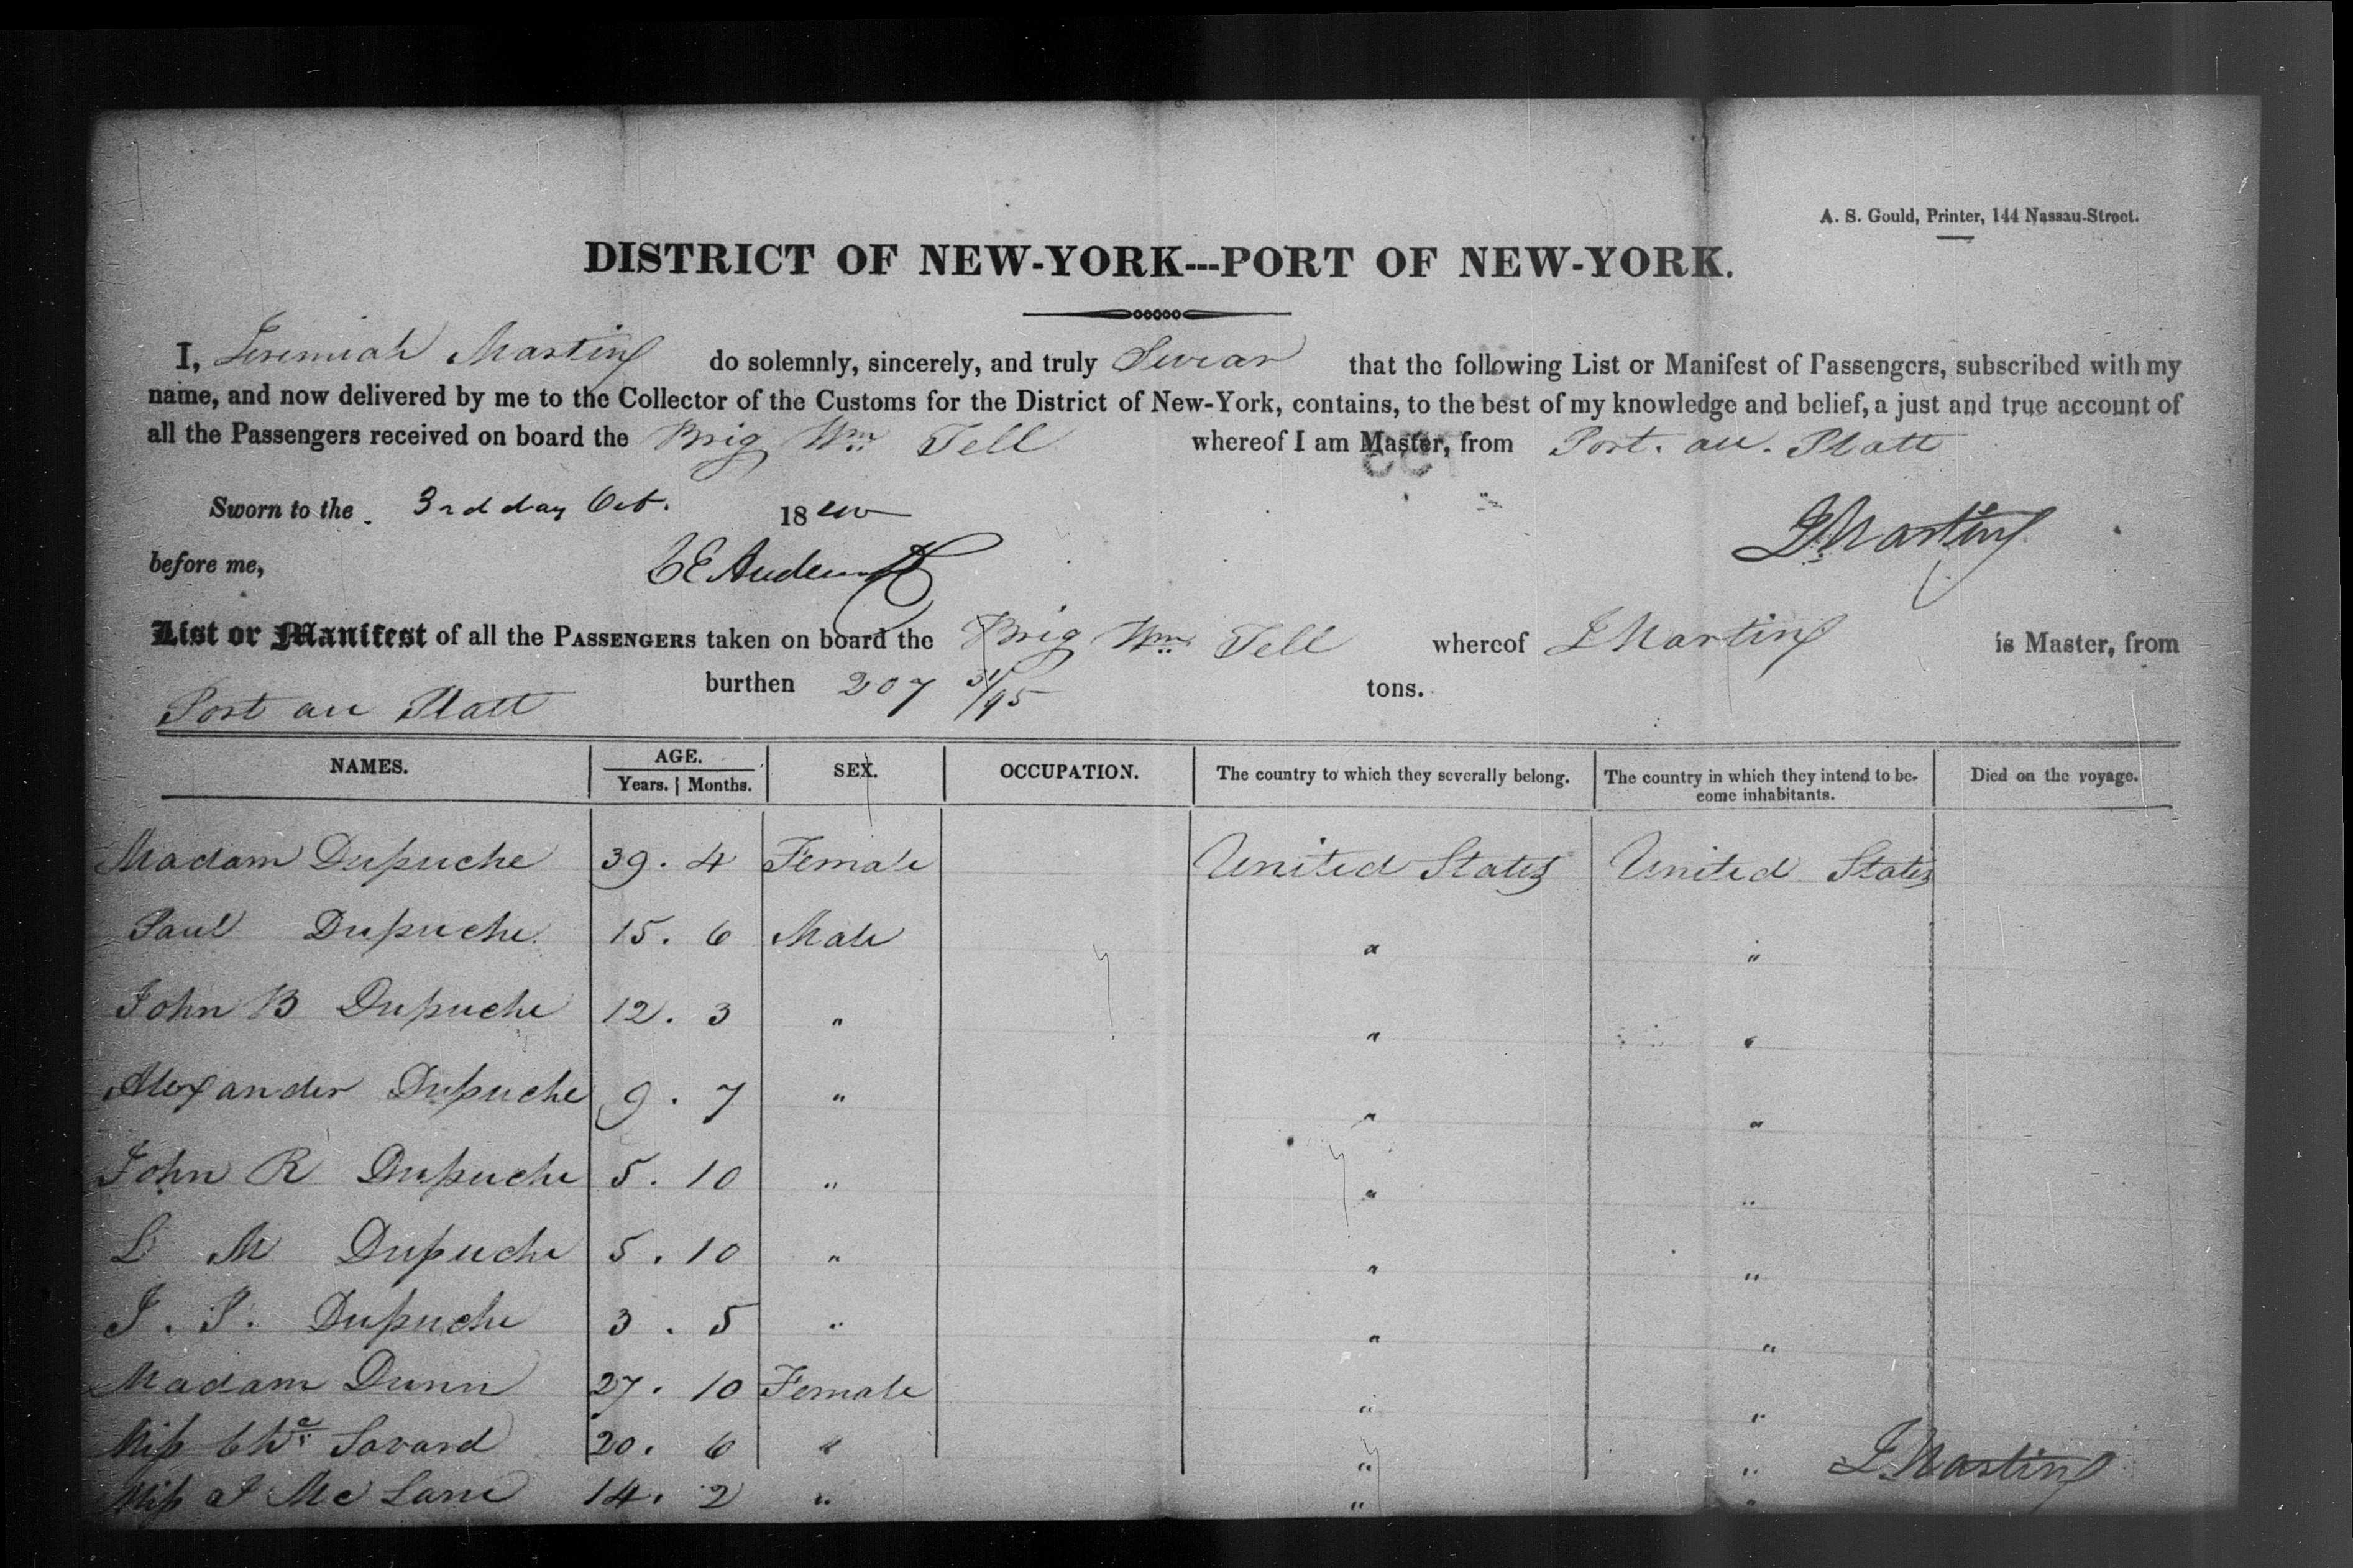 A. S. Gould, Printer, 144 Nassau-Street.
DISTRICT OF NEW-YORK---PORT OF NEW-YORK.
I, Jeremiah Martin do solemnly, sincerely, and truly Swear that the following List or Manifest of Passengers, subscribed with my
name, and now delivered by me to the Collector of the Customs for the District of New-York, contains, to the best of my knowledge and belief, a just and true account of
all the Passengers received on board the Brig Wm Tell whereof I am Master, from Port. au. Platt
Sworn to the 3rd day Oct. 18
J. Martin
before me,
List or Manifest of all the PASSENGERS taken on board the Brig Wm Tell whereof J Martin is Master, from
Port au Platt burthen 207 31/95 tons.
NAMES. AGE. Years. | Months. SEX. OCCUPATION. The country to which they severally belong. The country in which they intend to be-come inhabitants. Died on the voyage.
Madam Dupuche 39. 4 Female United States United States
Paul Dupuche 15. 6 Male " "
John B Dupuche 12. 3 " " "
Alexander Dupuche 9. 7 " " "
John R Dupuche 5. 10 " " "
L M Dupuche 5. 10 " " "
J. J. Dupuche 3. 5 " " "
Madam Dunn 27. 10 Female " "
Miss Savard 20. 6 " " " J. Martin
Miss Mc Lane 14. 2 " " "